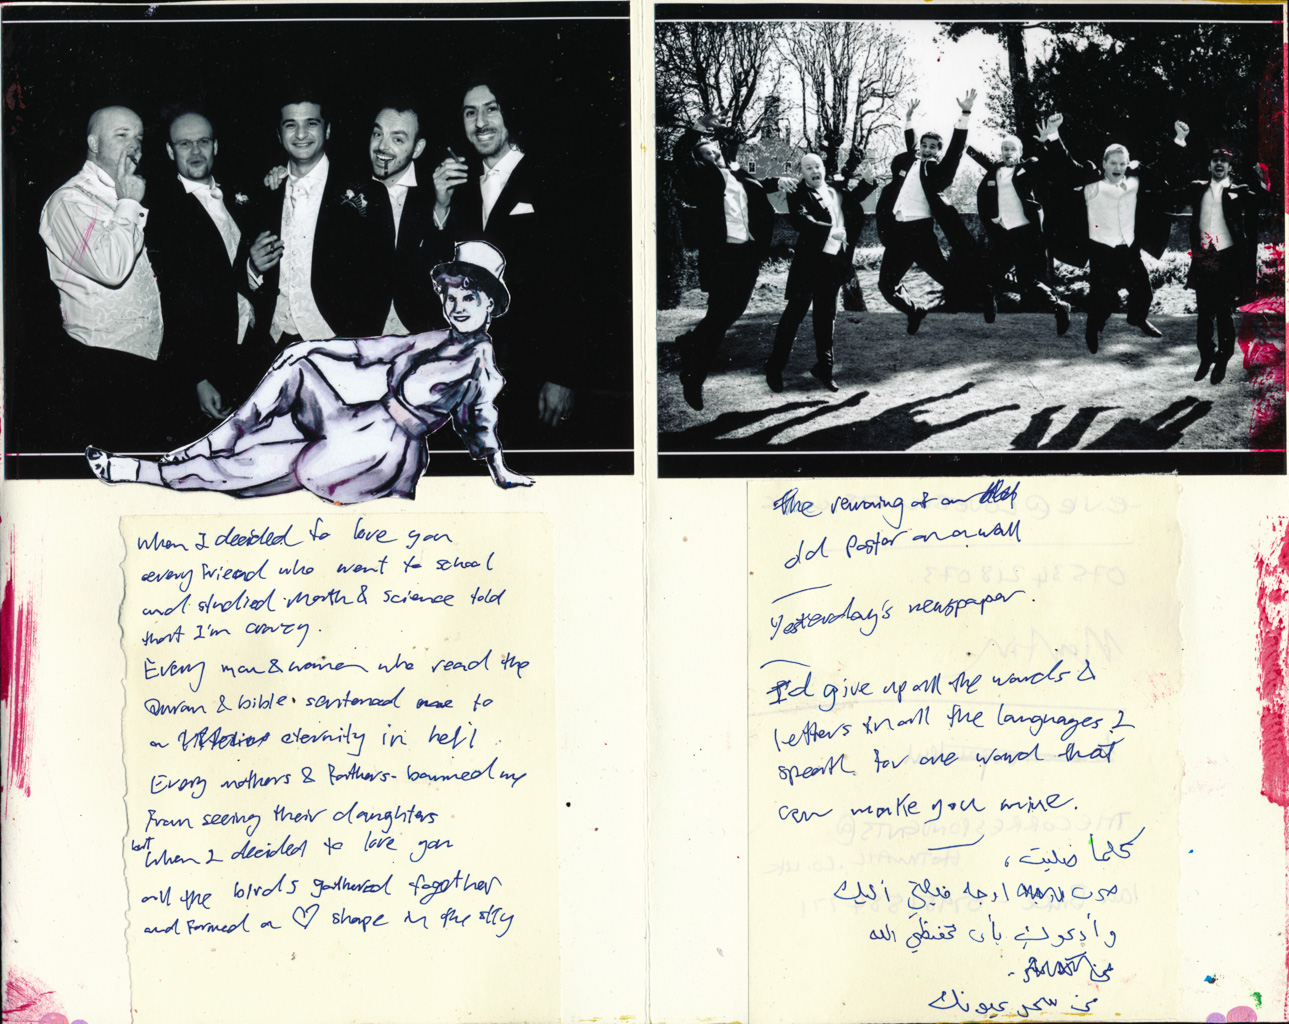 When I decided to love you
every friend who went to school
and studied Math & science told
that I'm crazy.
Every man & women who read the
Quran & bible. sentenced me to
a eternity in hell
Every mothers & Fathers banned my
From seeing their daughters
but When I decided to love you
all the birds gathered together
and formed a ♡ shape in the sky
The of an
old Postar on a wall
Yesterday's newspaper.
I'd give up all the words &
letters in all the languages I
speak for one word that
can make you mine.
كلما صليت،
صرت اوجه قبلتي اليك
وأدعوك بأن تحفظي الله
من
من سحر عيونك